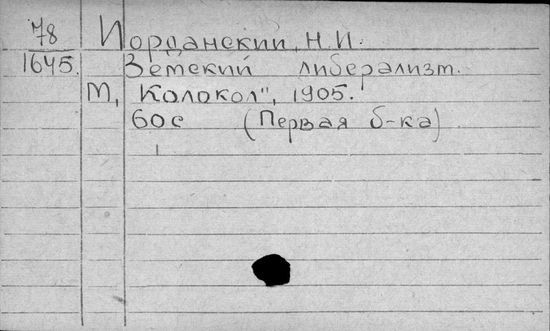 78 Иорданский, Н.И.
1645. Земский либерализм.
М, Колокол", 1905.
60с (Первая б-ка)